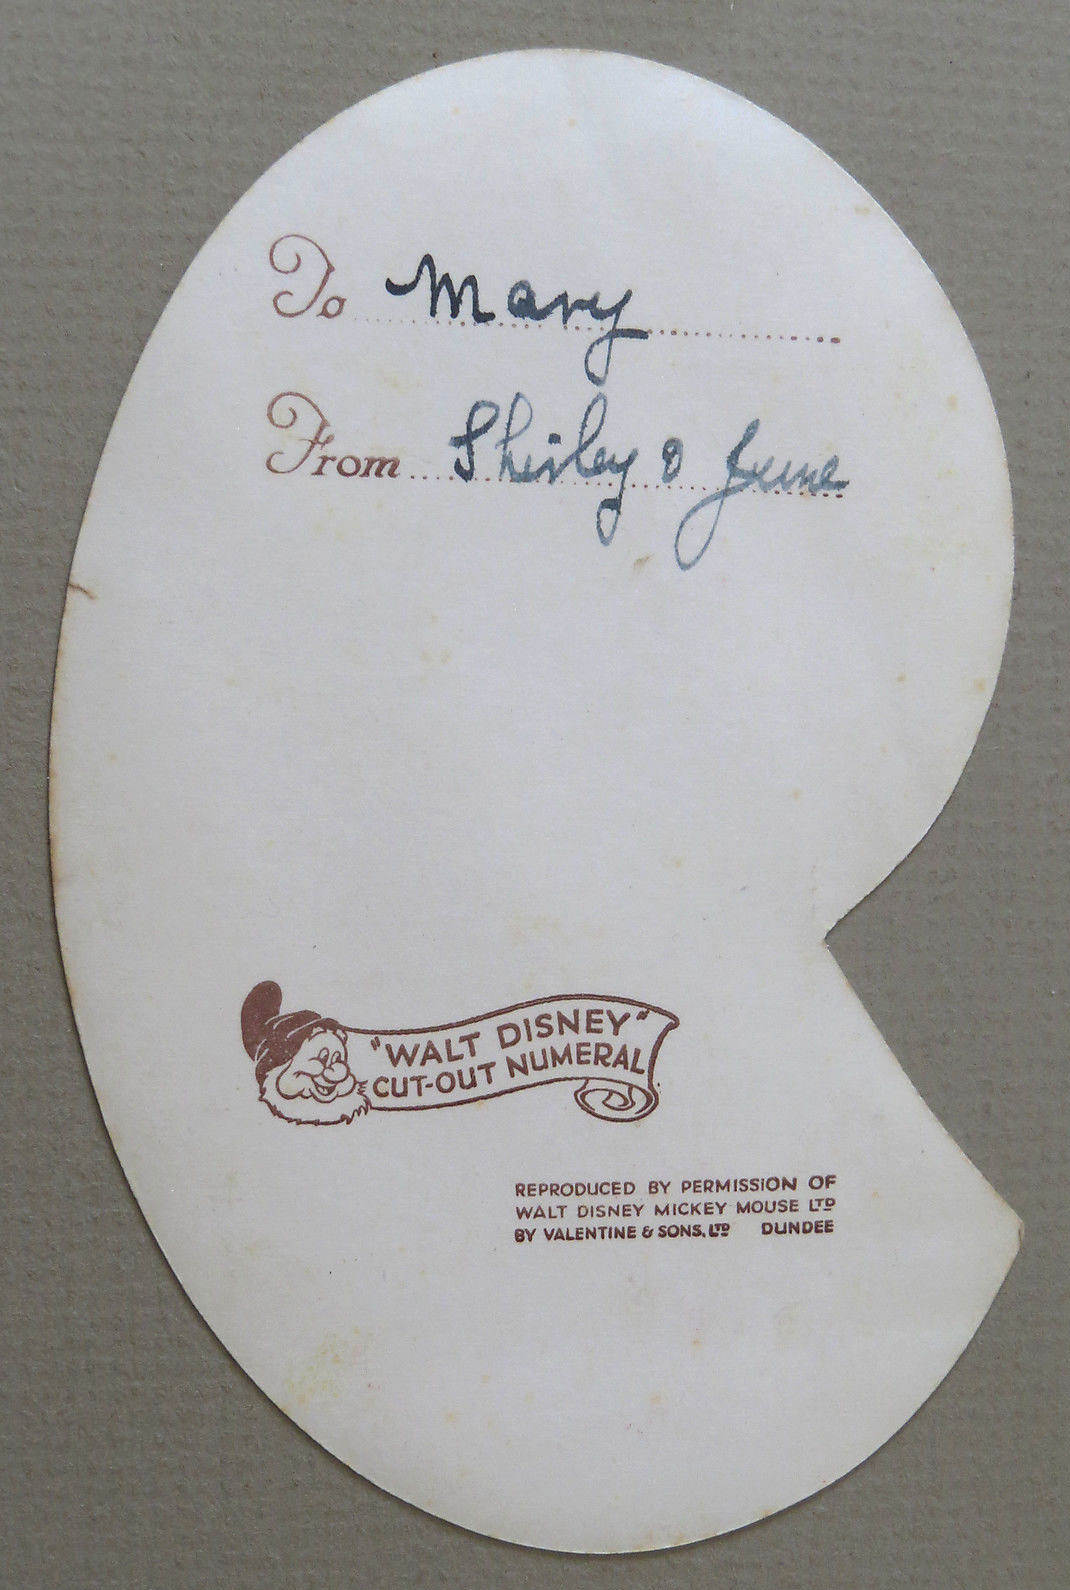 To Mary
From Shirley & June
"WALT DISNEY"
CUT-OUT NUMERAL
REPRODUCED BY PERMISSION OF
WALT DISNEY MICKEY MOUSE LTD
BY VALENTINE & SONS, LTD DUNDEE